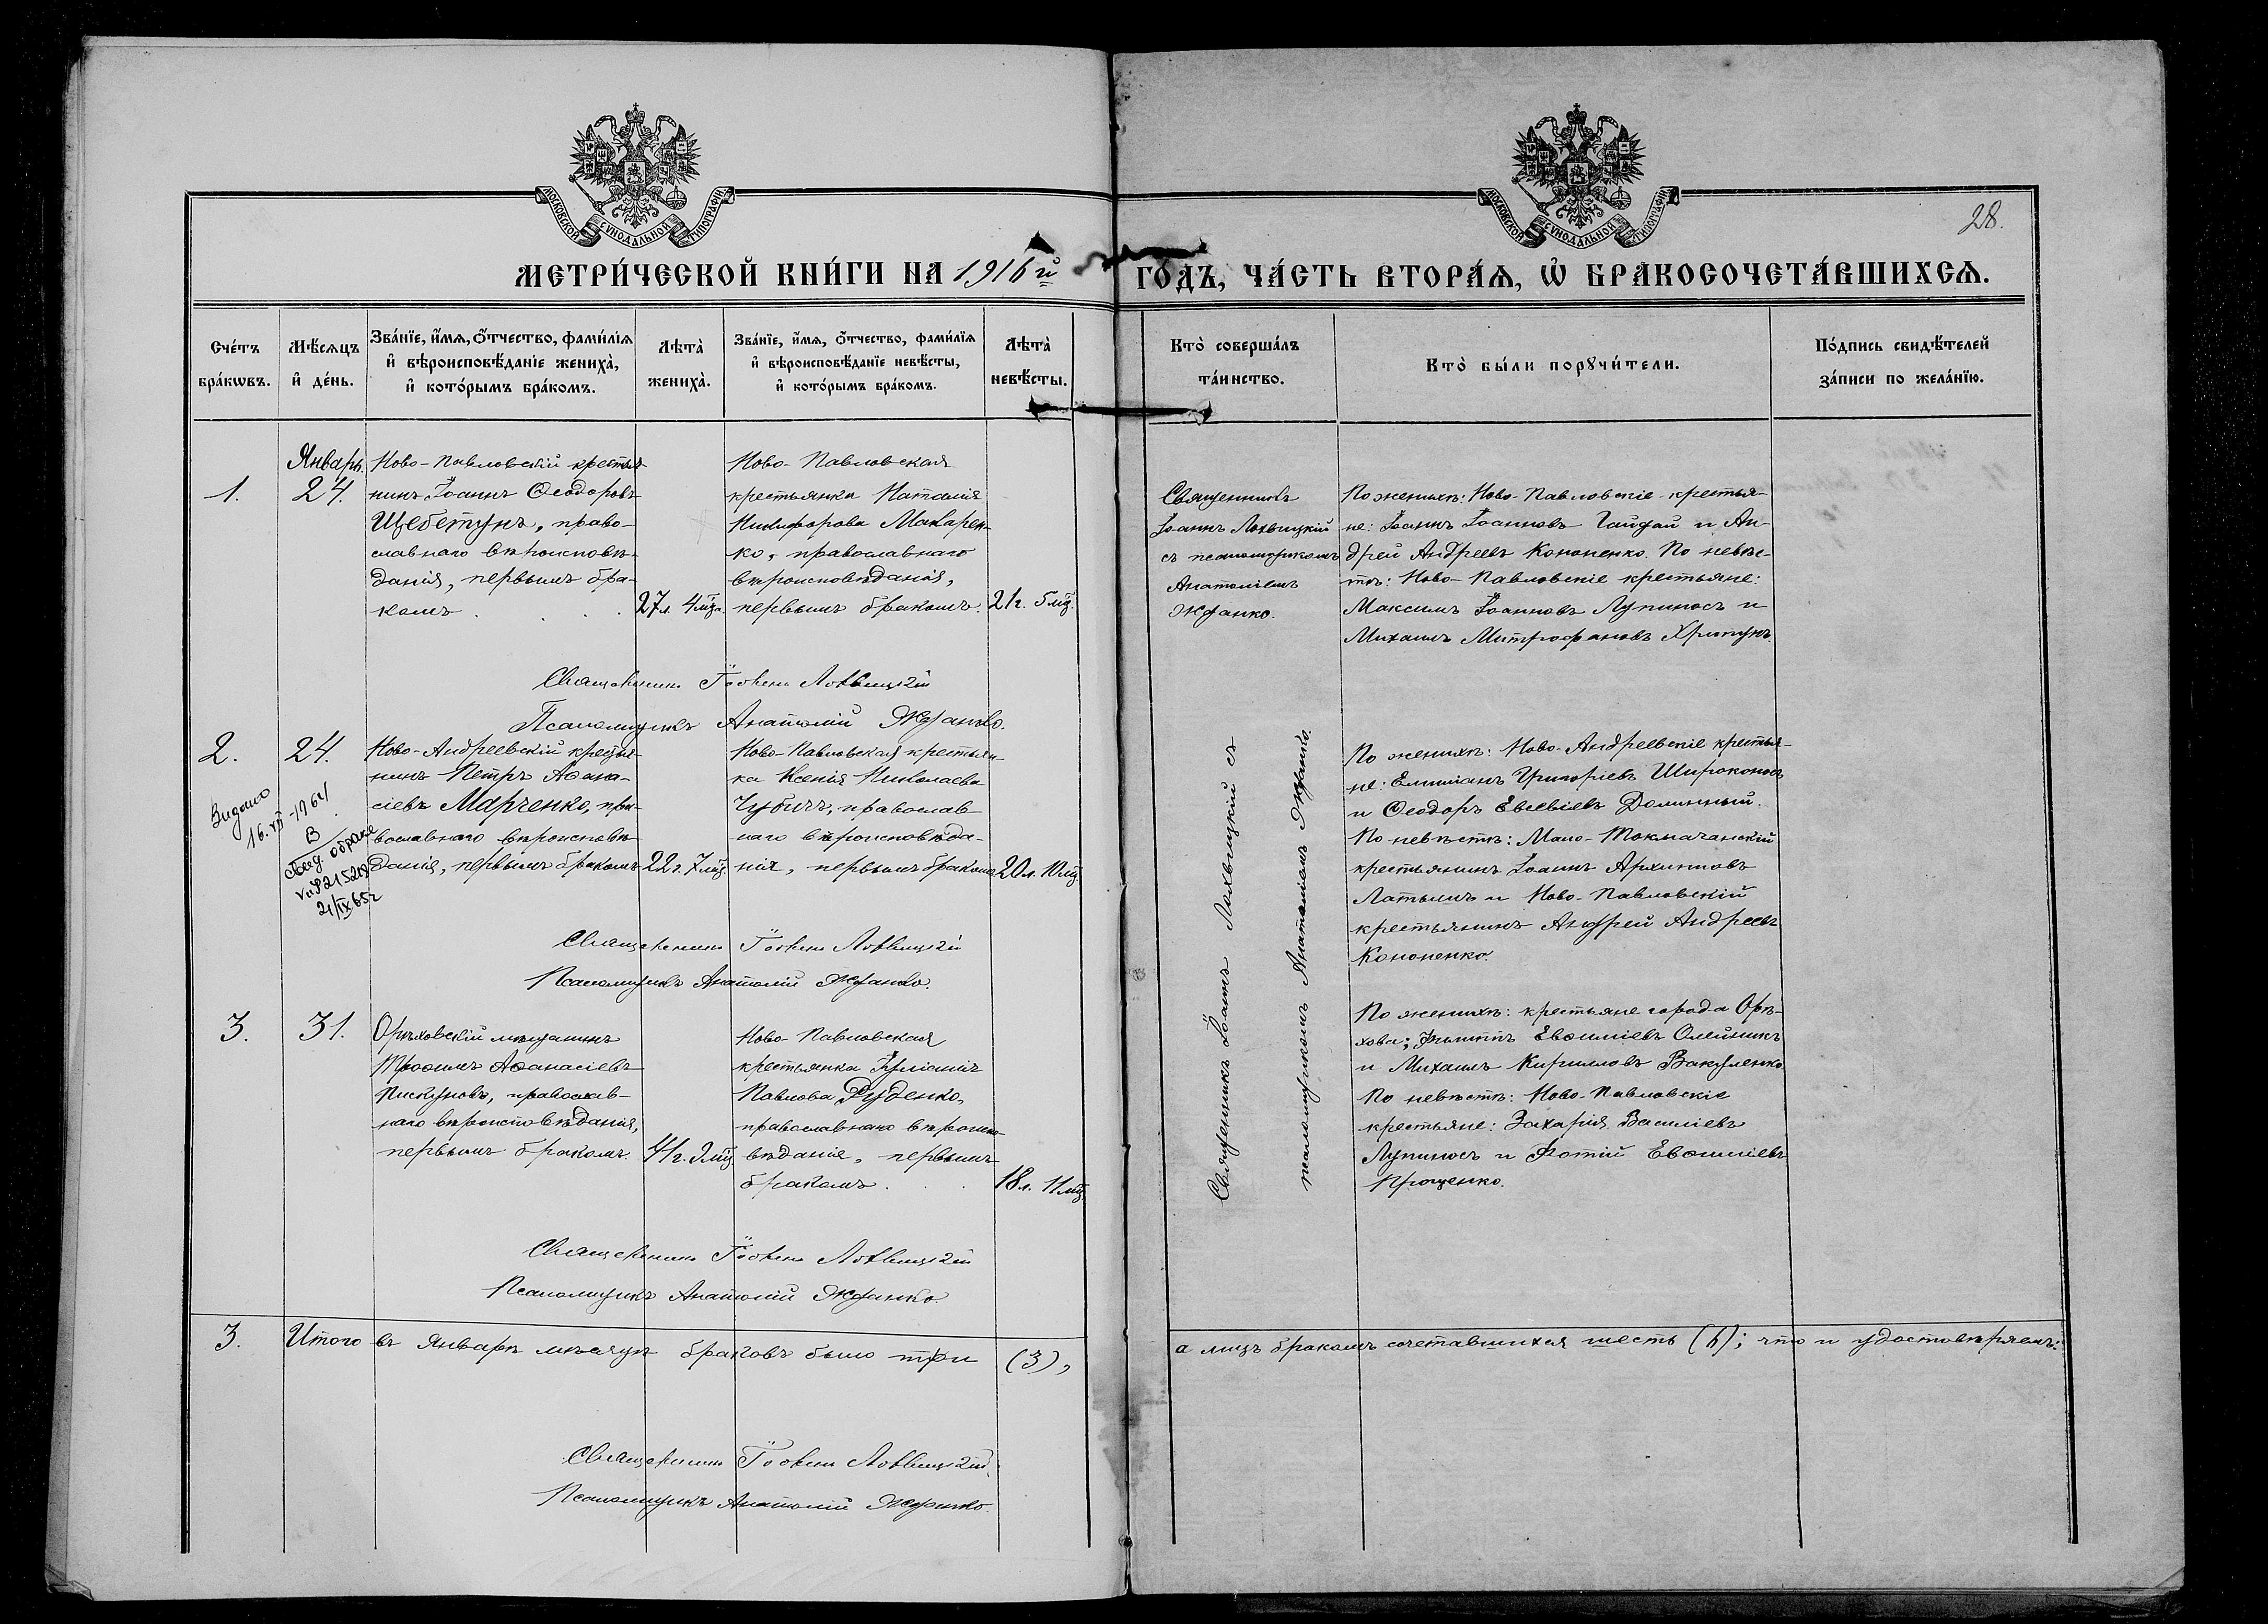 МОСКОВСКОЙ СѴНОДАЛЬНОЙ ТИПОГРАФІИ
МОСКОВСКОЙ СѴНОДАЛЬНОЙ ТИПОГРАФІИ
28.
МЕТРИ́ЧЕСКОЙ КНИ́ГИ НА 1916й ГО́ДЪ, ЧА́СТЬ ВТОРА́Ѧ, Ѡ҆ БРАКОСОЧЕТА́ВШИХСѦ.
Сче́тъ
бра́кѡвъ.
Мѣ́сѧцъ
и҆ де́нь.
Зва́нїе, и҆́мѧ, ѻ҆́тчество, фами́лїѧ
и҆ вѣроисповѣ́данїе жениха̀,
и҆ кото́рымъ бра́комъ.
Лѣта̀
жениха̀.
Зва́нїе, и҆́мѧ, ѻ҆́тчество, фами́лїѧ
и҆ вѣроисповѣ́данїе невѣ́сты,
и҆ кото́рымъ бра́комъ.
Лѣта̀
невѣ́сты.
Кто̀ соверша́лъ
та́инство.
Кто̀ бы́ли порꙋчи́тели.
По́дпись свидѣ́телей
за́писи по жела́нїю.
1.
Январь.
24.
Ново-Павловскій крестья-
нинъ Іоаннъ Ѳеодоровъ
Щебетунъ, право-
славнаго вѣроисповѣ-
данія, первымъ бра-
комъ . . .
27л. 4мца.
Ново-Павловская
крестьянка Наталія
Никифорова Макарен-
ко, православнаго
вѣроисповѣданія,
первымъ бракомъ.
21г. 5мц.
Священникъ
Іоаннъ Лохвицкій
съ псаломщикомъ
Анатоліемъ
Жданко.
По женихѣ: Ново-Павловскіе крестья-
не: Іоаннъ Іоанновъ Гайдай и Ан-
дрей Андреевъ Кононенко. По невѣс-
тѣ: Ново-Павловскіе крестьяне:
Максимъ Іоанновъ Лупиносъ и
Михаилъ Митрофановъ Хрипунъ.
Священникъ Іоаннъ Лохвицкій
Псаломщикъ Анатолій Жданко.
2.
24.
Видано
16.XII-1964
В
обраке
21/IX65г
Ново-Андреевскій крестья-
нинъ Петръ Аѳана-
сіевъ Марченко, пра-
вославнаго вѣроисповѣ-
данія, первымъ бракомъ
22г. 7мц.
Ново-Павловская крестьян-
ка Ксенія Николаева
Чубичъ, православ-
наго вѣроисповѣда-
нія, первымъ бракомъ
20л. 10мц.
Священникъ Іоаннъ Лохвицкій съ
псаломщикомъ Анатоліемъ Жданко.
По женихѣ: Ново-Андреевскіе крестья-
не: Емиліанъ Григоріевъ Широконосъ
и Ѳеодоръ Евсевіевъ Долинный.
По невѣстѣ: Мало-Токмачанскій
крестьянинъ Іоаннъ Архиповъ
Латышъ и Ново-Павловскій
крестьянинъ Андрей Андреевъ
Кононенко.
Священникъ Іоаннъ Лохвицкій
Псаломщикъ Анатолій Жданко.
3.
31.
Орѣховскій мѣщанинъ
Трофимъ Аѳанасіевъ
Пискуновъ, православ-
наго вѣроисповѣданія,
первымъ бракомъ.
Ново-Павловская
крестьянка Іуліанія
Павлова Руденко,
православнаго вѣроиспо-
вѣданіе, первымъ
бракомъ . . .
18л. 11мц.
По женихѣ: крестьяне города Орѣ-
хова: Филиппъ Евѳиміевъ Олейникъ
и Михаилъ Кирилловъ Вакуленко
По невѣстѣ: Ново-Павловскіе
крестьяне: Захарія Василіевъ
Лупиносъ и Фотій Евѳиміевъ
Прощенко.
Священникъ Іоаннъ Лохвицкій
Псаломщикъ Анатолій Жданко.
3. Итого въ Январѣ мѣсяцѣ браковъ было три (3), а лицъ бракомъ сочетавшихся шесть (6); что и удостовѣряемъ:
Священникъ Іоаннъ Лохвицкій,
Псаломщикъ Анатолій Жданко.